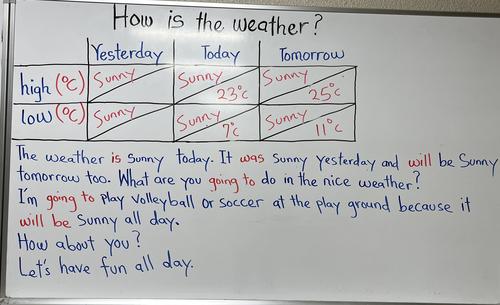 How is the weather?
Yesterday Today Tomorrow
high (°C) Sunny Sunny 23°C Sunny 25°C
low (°C) Sunny Sunny 7°C Sunny 11°C
The weather is sunny today. It was sunny yesterday and will be sunny
tomorrow too. What are you going to do in the nice weather?
I'm going to play volleyball or soccer at the play ground because it
will be sunny all day.
How about you?
Let's have fun all day.